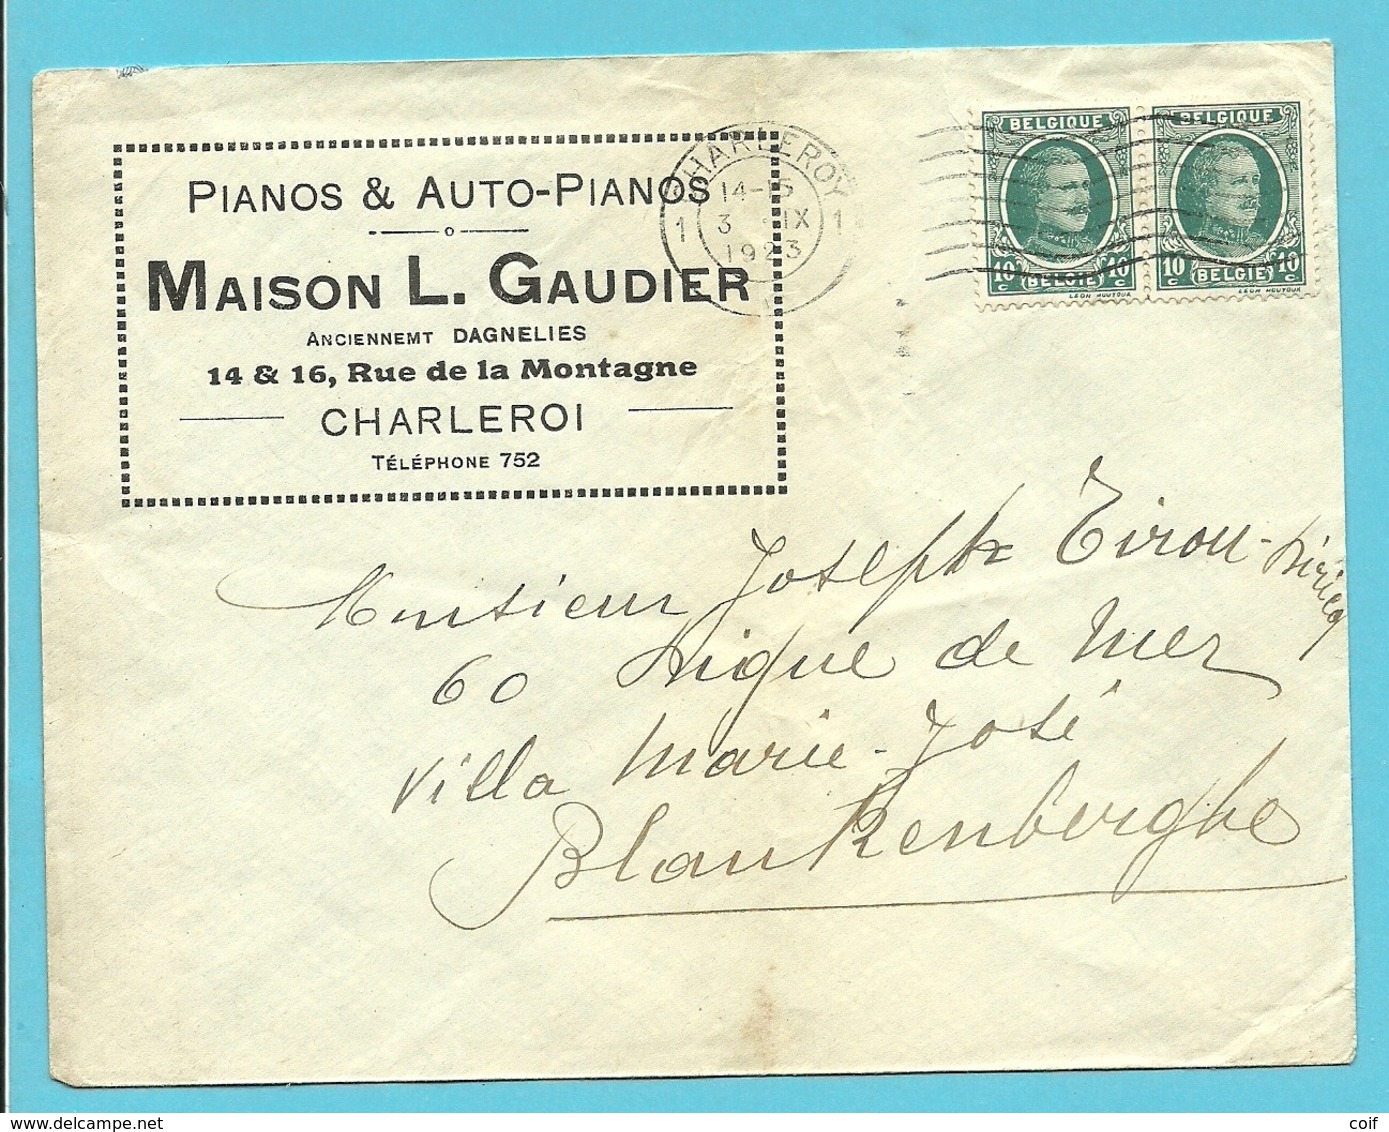 PIANOS & AUTO-PIANOS
MAISON L. GAUDIER
ANCIENNEMT DAGNELIES
14 & 16, Rue de la Montagne
CHARLEROI
TÉLÉPHONE 752
CHARLEROY
1 14-15 1
3 -IX
1923
BELGIQUE
10 c BELGIË 10 c
LÉON HOUYOUX
BELGIQUE
10 c BELGIË 10 c
LÉON HOUYOUX
Monsieur Joseph Tirou-
60 Digue de Mer
Villa Marie-José
Blankenberghe
delcampe.net
coif